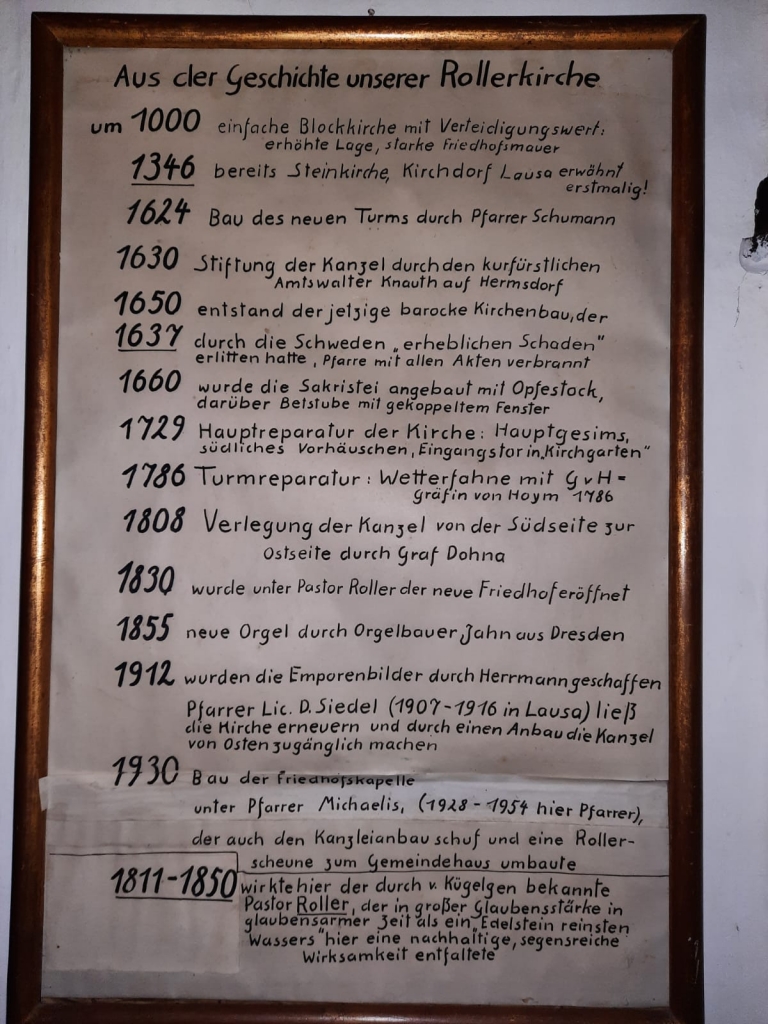 Aus der Geschichte unserer Rollerkirche
um 1000 einfache Blockkirche mit Verteidigungswert:
erhöhte Lage, starke Friedhofsmauer
1346 bereits Steinkirche, Kirchdorf Lausa erwähnt
erstmalig!
1624 Bau des neuen Turms durch Pfarrer Schumann
1630 Stiftung der Kanzel durch den kurfürstlichen
Amtswalter Knauth auf Hermsdorf
1650 entstand der jetzige barocke Kirchenbau, der
1637 durch die Schweden „erheblichen Schaden"
erlitten hatte, Pfarre mit allen Akten verbrannt
1660 wurde die Sakristei angebaut mit Opfestock,
darüber Betstube mit gekoppeltem Fenster
1729 Hauptreparatur der Kirche: Hauptgesims,
südliches Vorhäuschen, Eingangstor in „Kirchgarten"
1786 Turmreparatur: Wetterfahne mit G v H =
Gräfin von Hoym 1786
1808 Verlegung der Kanzel von der Südseite zur
Ostseite durch Graf Dohna
1830 wurde unter Pastor Roller der neue Friedhof eröffnet
1855 neue Orgel durch Orgelbauer Jahn aus Dresden
1912 wurden die Emporenbilder durch Herrmann geschaffen
Pfarrer Lic. D. Siedel (1907-1916 in Lausa) ließ
die Kirche erneuern und durch einen Anbau die Kanzel
von Osten zugänglich machen
1930 Bau der Friedhofskapelle
unter Pfarrer Michaelis, (1928-1954 hier Pfarrer),
der auch den Kanzleianbau schuf und eine Roller-
scheune zum Gemeindehaus umbaute
1811-1850 wirkte hier der durch v. Kügelgen bekannte
Pastor Roller, der in großer Glaubensstärke in
glaubensarmer Zeit als ein „Edelstein reinsten
Wassers" hier eine nachhaltige, segensreiche
Wirksamkeit entfaltete